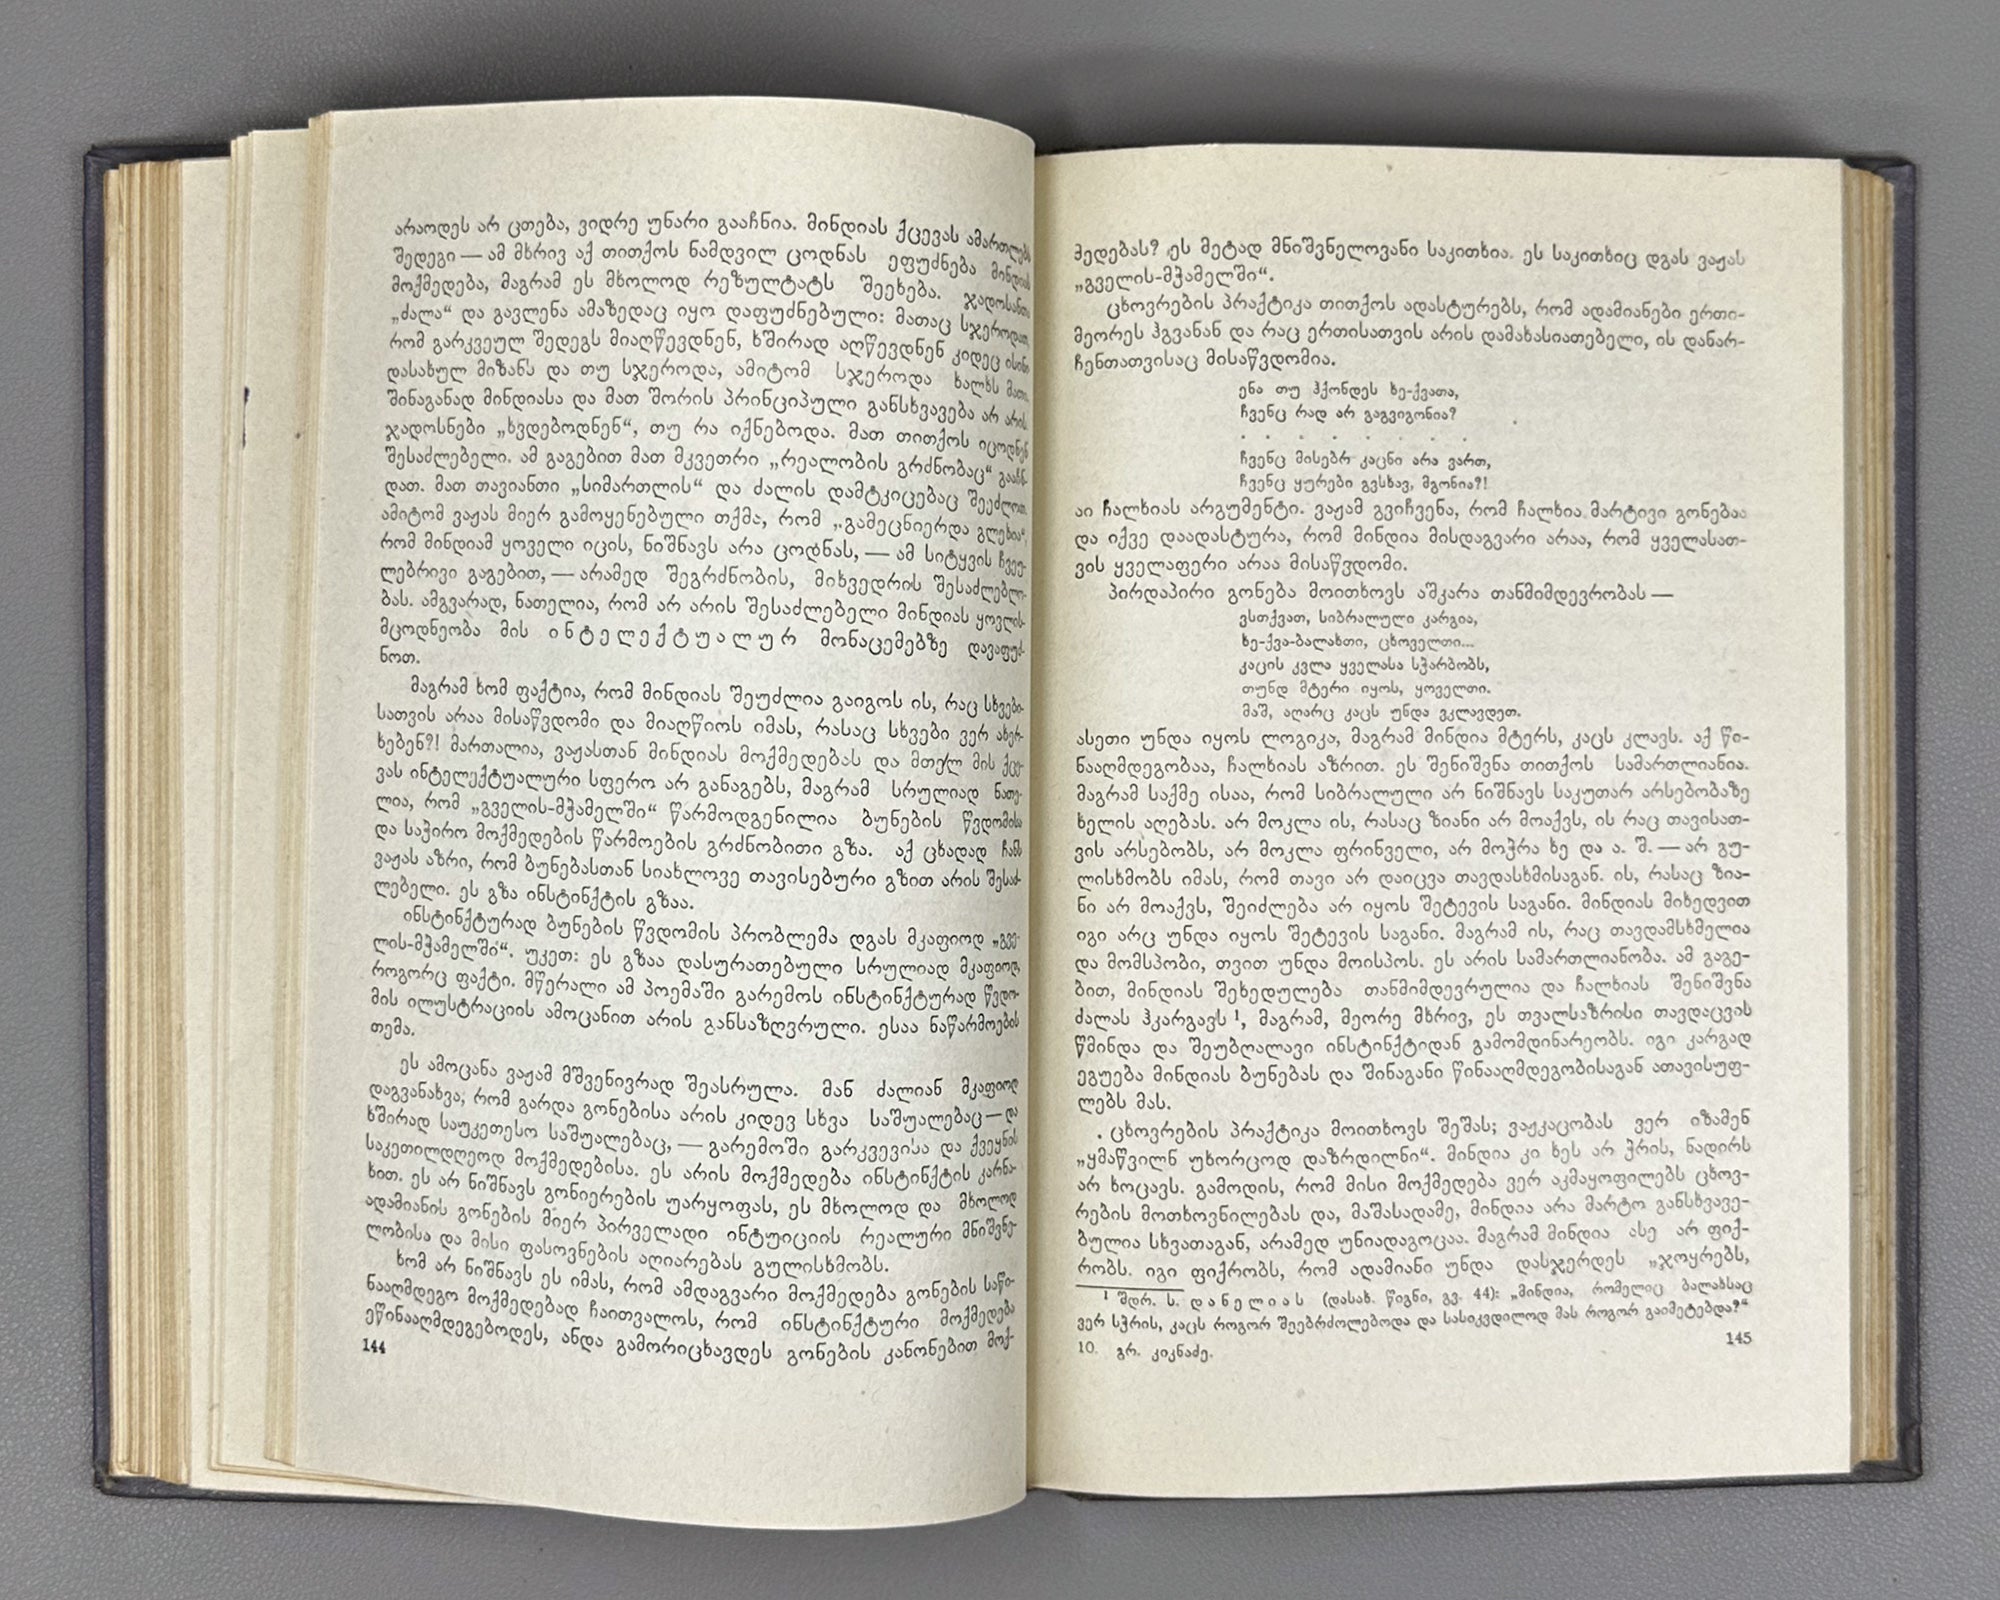 არაოდეს არ ცთება, ვიდრე უნარი გააჩნია. მინდიას ქცევას ამართლებს
შედეგი — ამ მხრივ აქ თითქოს ნამდვილ ცოდნას ეფუძნება მინდიას
მოქმედება, მაგრამ ეს მხოლოდ რეზულტატს შეეხება. ჯადოსანთა
„ძალა“ და გავლენა ამაზედაც იყო დაფუძნებული: მათაც სჯეროდათ,
რომ გარკვეულ შედეგს მიაღწევდნენ, ხშირად აღწევდნენ კიდეც ისინი
დასახულ მიზანს და თუ სჯეროდა, ამიტომ სჯეროდა ხალხს მათი.
შინაგანად მინდიასა და მათ შორის პრინციპული განსხვავება არ არის.
ჯადოსნები „ხვდებოდნენ“, თუ რა იქნებოდა. მათ თითქოს იცოდნენ
შესაძლებელი. ამ გაგებით მათ მკვეთრი „რეალობის გრძნობაც“ გააჩნ-
დათ. მათ თავიანთი „სიმართლის“ და ძალის დამტკიცებაც შეეძლოთ.
ამიტომ ვაჟას მიერ გამოყენებული თქმა, რომ „გამეცნიერდა გლეხია“,
რომ მინდიამ ყოველი იცის, ნიშნავს არა ცოდნას, — ამ სიტყვის ჩვეუ-
ლებრივი გაგებით, — არამედ შეგრძნობის, მიხვედრის შესაძლებლო-
ბას. ამგვარად, ნათელია, რომ არ არის შესაძლებელი მინდიას ყოვლის-
მცოდნეობა მის ინტელექტუალურ მონაცემებზე დავაფუძ-
ნოთ.
მაგრამ ხომ ფაქტია, რომ მინდიას შეუძლია გაიგოს ის, რაც სხვები-
სათვის არაა მისაწვდომი და მიაღწიოს იმას, რასაც სხვები ვერ ახერ-
ხებენ?! მართალია, ვაჟასთან მინდიას მოქმედებას და მთელ მის ქცე-
ვას ინტელექტუალური სფერო არ განაგებს, მაგრამ სრულიად ნათე-
ლია, რომ „გველის-მჭამელში“ წარმოდგენილია ბუნების წვდომისა
და საჭირო მოქმედების წარმოების გრძნობითი გზა. აქ ცხადად ჩანს
ვაჟას აზრი, რომ ბუნებასთან სიახლოვე თავისებური გზით არის შესაძ-
ლებელი. ეს გზა ინსტინქტის გზაა.
ინსტინქტურად ბუნების წვდომის პრობლემა დგას მკაფიოდ „გვე-
ლის-მჭამელში“. უკეთ: ეს გზაა დასურათებული სრულიად მკაფიოდ,
როგორც ფაქტი. მწერალი ამ პოემაში გარემოს ინსტინქტურად წვდო-
მის ილუსტრაციის ამოცანით არის განსაზღვრული. ესაა ნაწარმოების
თემა.
ეს ამოცანა ვაჟამ მშვენივრად შეასრულა. მან ძალიან მკაფიოდ
დაგვანახვა, რომ გარდა გონებისა არის კიდევ სხვა საშუალებაც — და
ხშირად საუკეთესო საშუალებაც, — გარემოში გარკვევისა და ქვეყნის
საკეთილდღეოდ მოქმედებისა. ეს არის მოქმედება ინსტინქტის კარნა-
ხით. ეს არ ნიშნავს გონიერების უარყოფას, ეს მხოლოდ და მხოლოდ
ადამიანის გონების მიერ პირველადი ინტუიციის რეალური მნიშვნე-
ლობისა და მისი ფასოვნების აღიარებას გულისხმობს.
ხომ არ ნიშნავს ეს იმას, რომ ამდაგვარი მოქმედება გონების საწი-
ნააღმდეგო მოქმედებად ჩაითვალოს, რომ ინსტინქტური მოქმედება
ეწინააღმდეგებოდეს, ანდა გამორიცხავდეს გონების კანონებით მოქ-
144
მედებას? ეს მეტად მნიშვნელოვანი საკითხია. ეს საკითხიც დგას ვაჟას
„გველის-მჭამელში“.
ცხოვრების პრაქტიკა თითქოს ადასტურებს, რომ ადამიანები ერთი-
მეორეს ჰგვანან და რაც ერთისათვის არის დამახასიათებელი, ის დანარ-
ჩენთათვისაც მისაწვდომია.
ენა თუ ჰქონდეს ხე-ქვათა,
ჩვენც რად არ გაგვიგონია?
. . . . . . . . .
ჩვენც მისებრ კაცნი არა ვართ,
ჩვენც ყურები გვსხავ, მგონია?!
აი ჩალხიას არგუმენტი. ვაჟამ გვიჩვენა, რომ ჩალხია მარტივი გონებაა
და იქვე დაადასტურა, რომ მინდია მისდაგვარი არაა, რომ ყველასათ-
ვის ყველაფერი არაა მისაწვდომი.
პირდაპირი გონება მოითხოვს აშკარა თანმიმდევრობას —
ვსთქვათ, სიბრალული კარგია,
ხე-ქვა-ბალახთი, ცხოველთი...
კაცის კვლა ყველასა სჭარბობს,
თუნდ მტერი იყოს, ყოველთი.
მაშ, აღარც კაცს უნდა ვკლავდეთ.
ასეთი უნდა იყოს ლოგიკა, მაგრამ მინდია მტერს, კაცს კლავს. აქ წი-
ნააღმდეგობაა, ჩალხიას აზრით. ეს შენიშვნა თითქოს სამართლიანია.
მაგრამ საქმე ისაა, რომ სიბრალული არ ნიშნავს საკუთარ არსებობაზე
ხელის აღებას. არ მოკლა ის, რასაც ზიანი არ მოაქვს, ის რაც თავისათ-
ვის არსებობს, არ მოკლა ფრინველი, არ მოჭრა ხე და ა. შ. — არ გუ-
ლისხმობს იმას, რომ თავი არ დაიცვა თავდასხმისაგან. ის, რასაც ზია-
ნი არ მოაქვს, შეიძლება არ იყოს შეტევის საგანი. მინდიას მიხედვით
იგი არც უნდა იყოს შეტევის საგანი. მაგრამ ის, რაც თავდამსხმელია
და მომსპობი, თვით უნდა მოისპოს. ეს არის სამართლიანობა. ამ გაგე-
ბით, მინდიას შეხედულება თანმიმდევრულია და ჩალხიას შენიშვნა
ძალას ჰკარგავს ¹, მაგრამ, მეორე მხრივ, ეს თვალსაზრისი თავდაცვის
წმინდა და შეუბღალავი ინსტინქტიდან გამომდინარეობს. იგი კარგად
ეგუება მინდიას ბუნებას და შინაგანი წინააღმდეგობისაგან ათავისუფ-
ლებს მას.
ცხოვრების პრაქტიკა მოითხოვს შეშას; ვაჟკაცობას ვერ იზამენ
„ყმაწვილნ უხორცოდ დაზრდილნი“. მინდია კი ხეს არ ჭრის, ნადირს
არ ხოცავს. გამოდის, რომ მისი მოქმედება ვერ აკმაყოფილებს ცხოვ-
რების მოთხოვნილებას და, მაშასადამე, მინდია არა მარტო განსხვავე-
ბულია სხვათაგან, არამედ უნიადაგოცაა. მაგრამ მინდია ასე არ ფიქ-
რობს. იგი ფიქრობს, რომ ადამიანი უნდა დასჯერდეს „ჯოყრებს,
¹ შდრ. ს. დანელიას (დასახ. წიგნი, გვ. 44): „მინდია, რომელიც ბალახსაც
ვერ სჭრის, კაცს როგორ შეებრძოლებოდა და სასიკვდილოდ მას როგორ გაიმეტებდა?“
10. გრ. კიკნაძე.
145